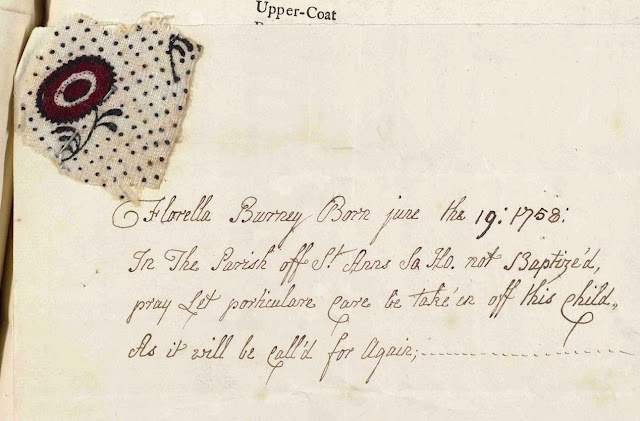 Upper-Coat
Florella Burney Born june the 19: 1758:
In The Parish off St. Anns So Ho. not Baptize'd,
pray Let porticulare Care be take'en off this Child,,
As it will be call'd for Again;